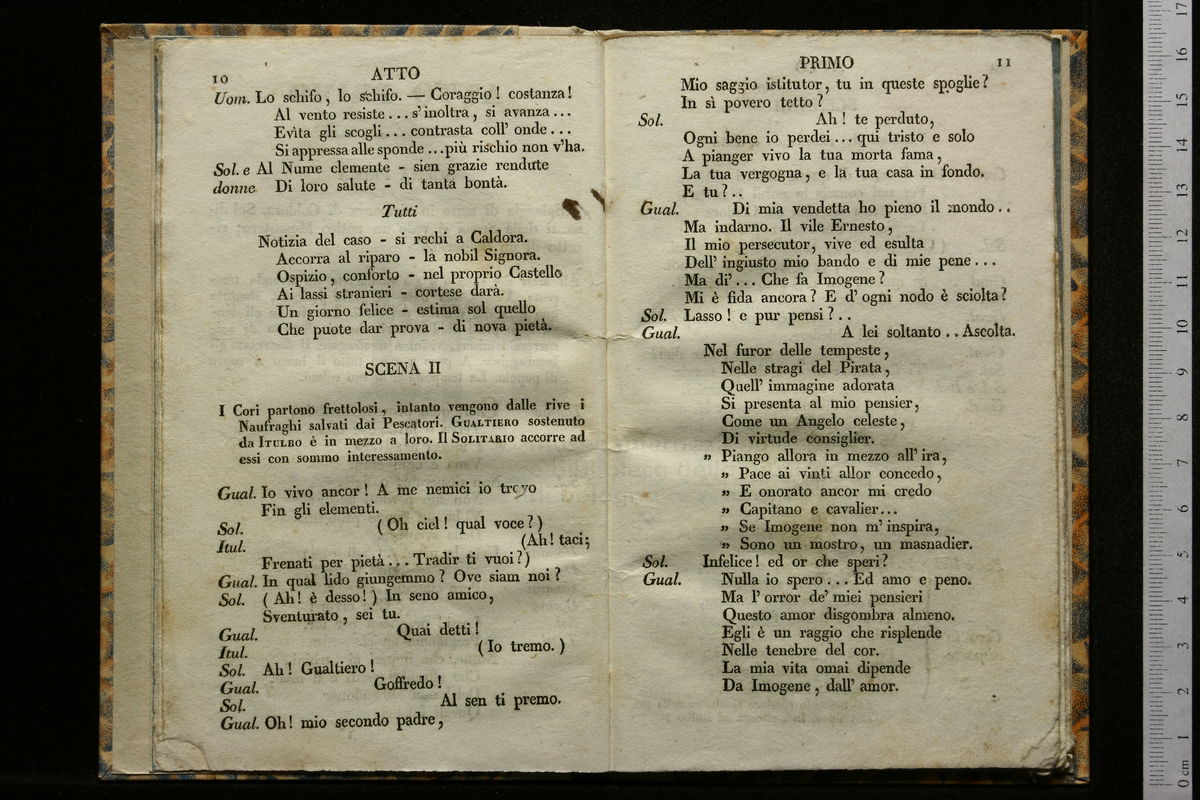 10
ATTO
Uom. Lo schifo, lo schifo. — Coraggio! costanza!
Al vento resiste... s' inoltra, si avanza...
Evita gli scogli... contrasta coll' onde...
Si appressa alle sponde ...più rischio non v'ha.
Sol. e Al Nume clemente - sien grazie rendute
donne Di loro salute - di tanta bontà.
Tutti
Notizia del caso - si rechi a Caldora.
Accorra al riparo - la nobil Signora.
Ospizio, conforto - nel proprio Castello
Ai lassi stranieri - cortese darà.
Un giorno felice - estima sol quello
Che puote dar prova - di nova pietà.
SCENA II
I Cori partono frettolosi, intanto vengono dalle rive i
Naufraghi salvati dai Pescatori. GUALTIERO sostenuto
da ITULBO è in mezzo a loro. Il SOLITARIO accorre ad
essi con sommo interessamento.
Gual. Io vivo ancor! A me nemici io trovo
Fin gli elementi.
Sol. (Oh ciel! qual voce?)
Itul. (Ah! taci;
Frenati per pietà... Tradir ti vuoi?)
Gual. In qual lido giungemmo? Ove siam noi?
Sol. (Ah! è desso!) In seno amico,
Sventurato, sei tu.
Gual. Quai detti!
Itul. (Io tremo.)
Sol. Ah! Gualtiero!
Gual. Goffredo!
Sol. Al sen ti premo.
Gual. Oh! mio secondo padre,
PRIMO
11
Mio saggio istitutor, tu in queste spoglie?
In sì povero tetto?
Sol. Ah! te perduto,
Ogni bene io perdei... qui tristo e solo
A pianger vivo la tua morta fama,
La tua vergogna, e la tua casa in fondo.
E tu?..
Gual. Di mia vendetta ho pieno il mondo..
Ma indarno. Il vile Ernesto,
Il mio persecutor, vive ed esulta
Dell' ingiusto mio bando e di mie pene...
Ma di'... Che fa Imogene?
Mi è fida ancora? E d' ogni nodo è sciolta?
Sol. Lasso! e pur pensi?..
Gual. A lei soltanto .. Ascolta.
Nel furor delle tempeste,
Nelle stragi del Pirata,
Quell' immagine adorata
Si presenta al mio pensier,
Come un Angelo celeste,
Di virtude consiglier.
„ Piango allora in mezzo all' ira,
„ Pace ai vinti allor concedo,
„ E onorato ancor mi credo
„ Capitano e cavalier...
„ Se Imogene non m' inspira,
„ Sono un mostro, un masnadier.
Sol. Infelice! ed or che speri?
Gual. Nulla io spero... Ed amo e peno.
Ma l' orror de' miei pensieri
Questo amor disgombra almeno.
Egli è un raggio che risplende
Nelle tenebre del cor.
La mia vita omai dipende
Da Imogene, dall' amor.
17
16
15
14
13
12
11
10
9
8
7
6
5
4
3
2
1
0 cm